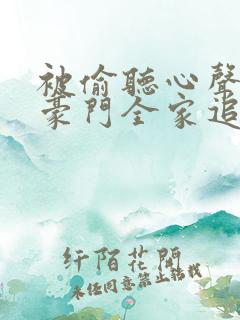 被偷聽心聲
豪門全家追
纤陌花開
未经同意禁止转载